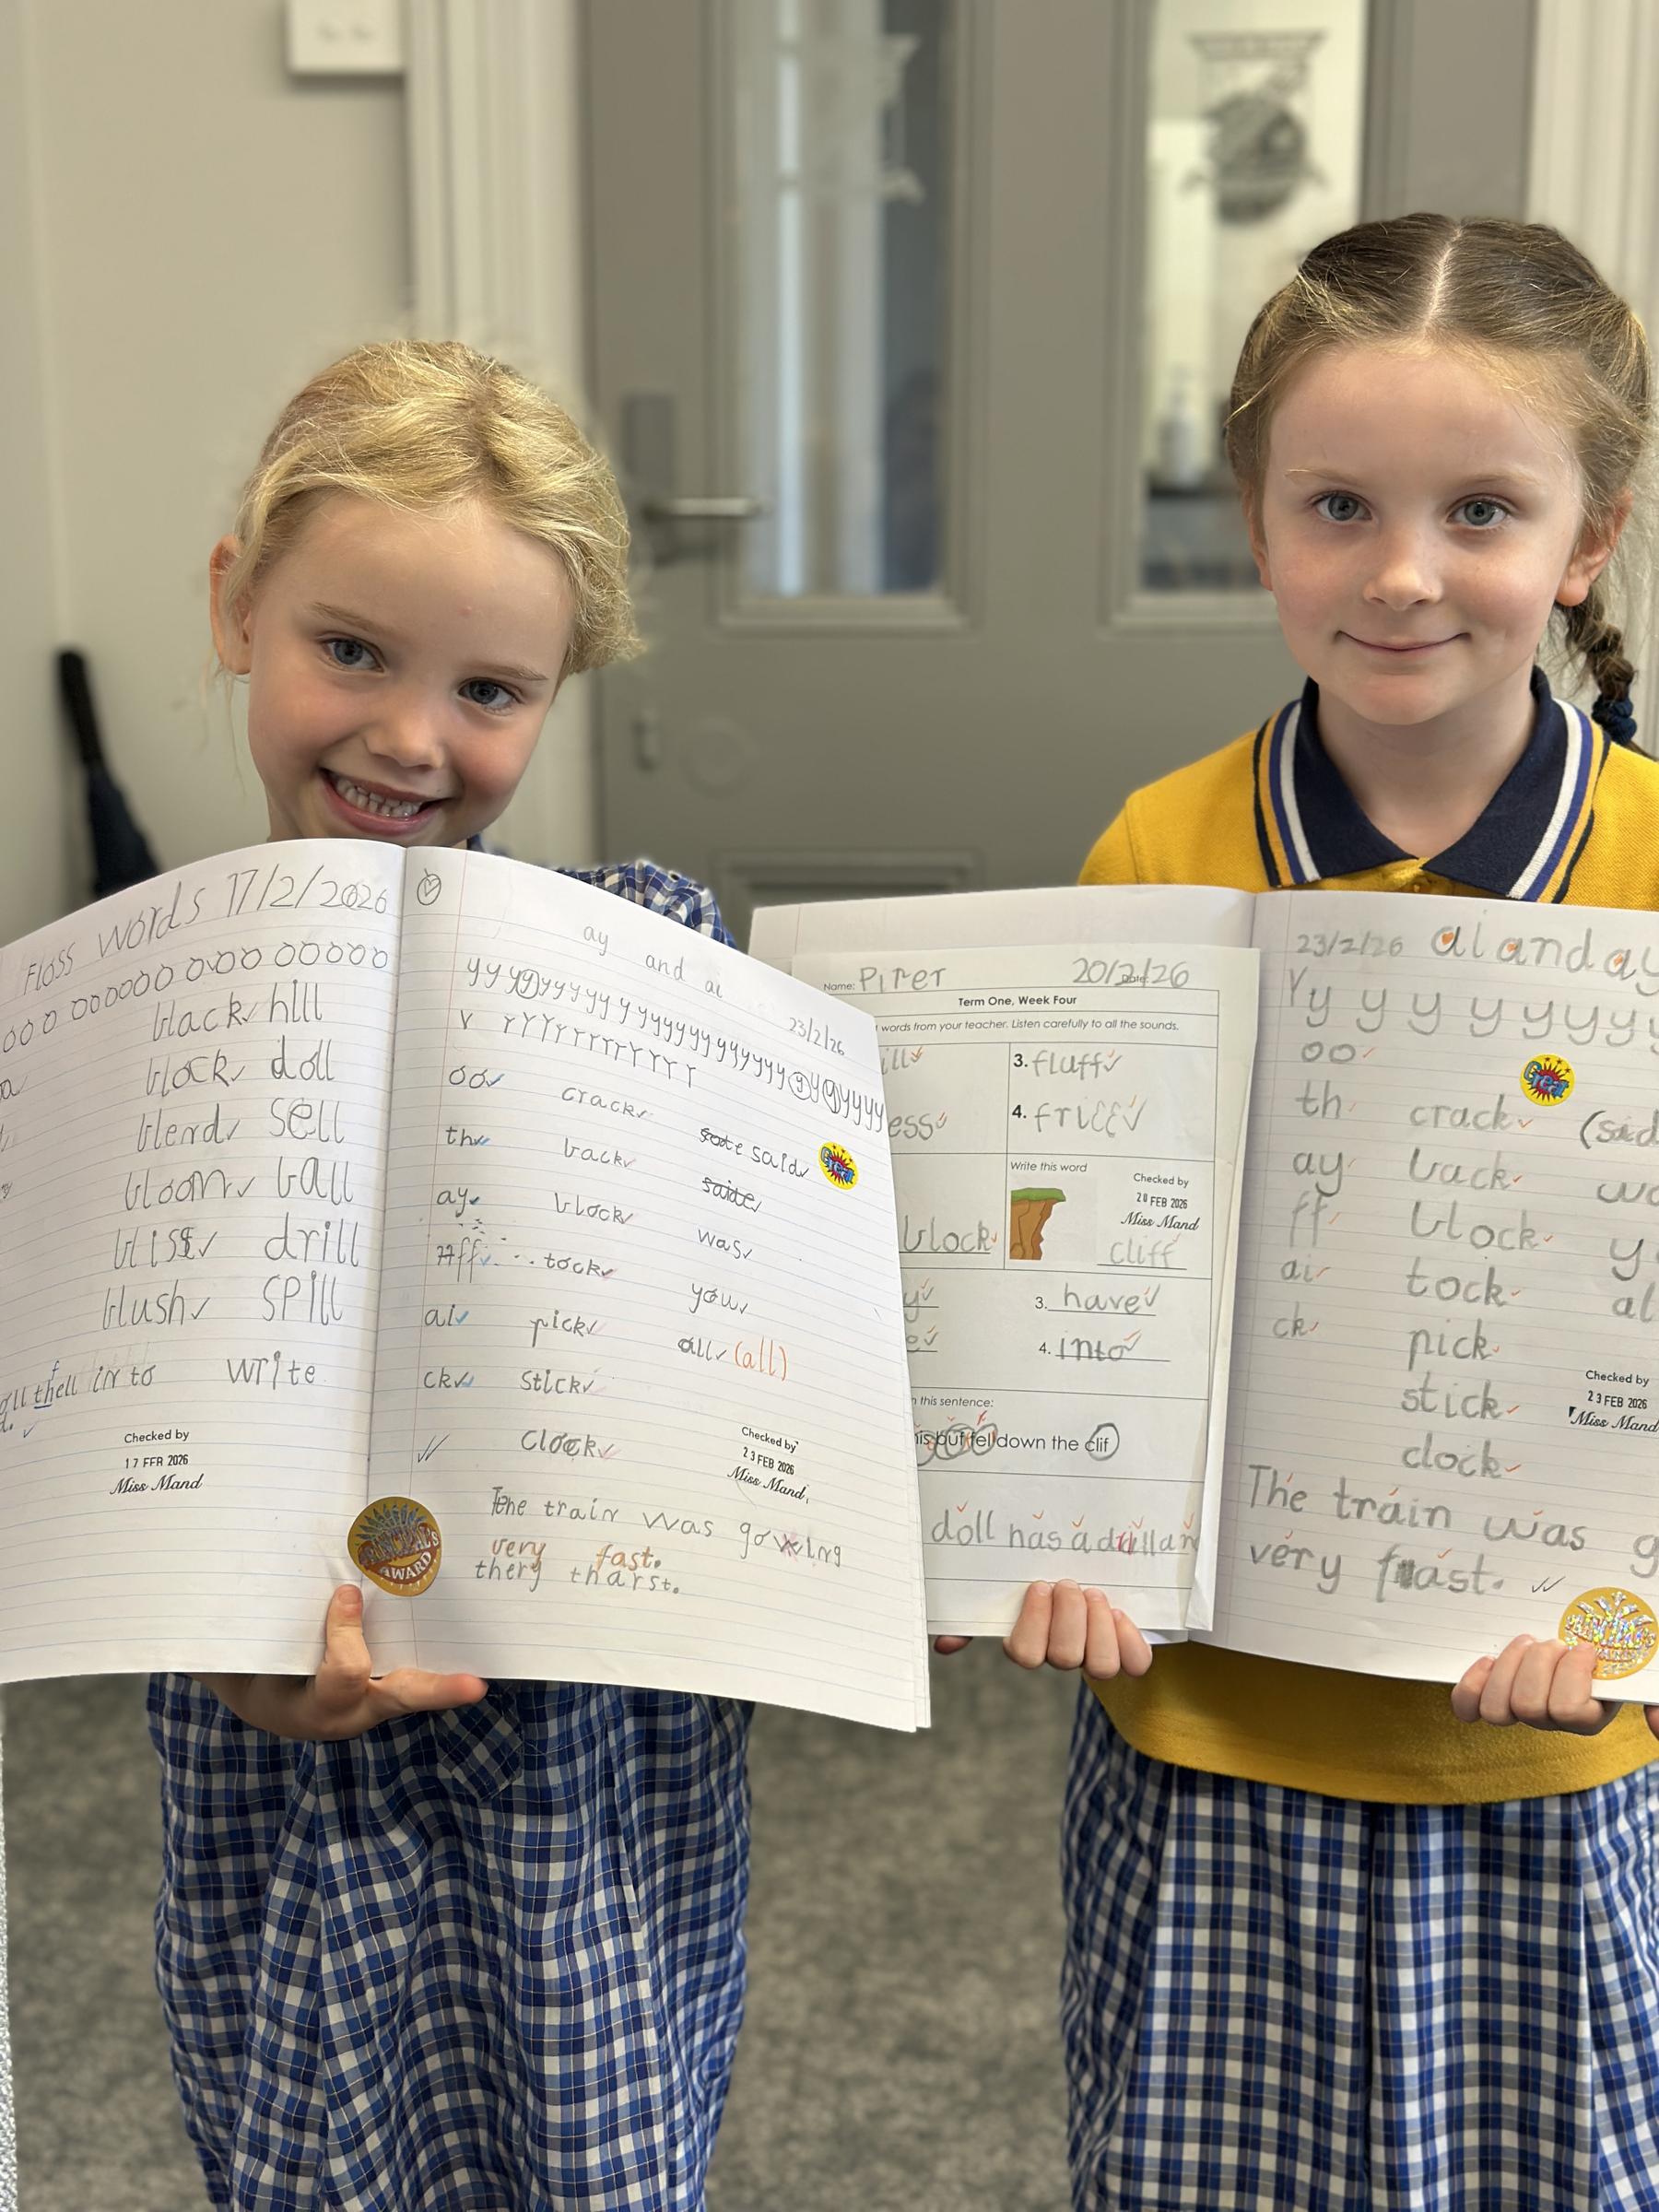 Floss words 17/2/2026
ooo ooooooo oooo ooooo
black hill
block doll
blend sell
bloom ball
bliss drill
blush spill
in to write
Checked by
17 FEB 2026
Miss Mand
ay and ai
23/2/26
oo crack
said
Great
th back
saide
ay block
was
ff tock
you
ai pick
all (all)
ck stick
clock
Checked by
23 FEB 2026
Miss Mand
The train was gowing
very fast.
thery tharst.
PRINCIPAL'S
AWARD
Name: Piper 20/2/26
Term One, Week Four
words from your teacher. Listen carefully to all the sounds.
3. fluff
ess 4. frill
Write this word
Checked by
20 FEB 2026
Miss Mand
block cliff
3. have
4. into
this sentence:
but fell down the clif
doll has a drill an
23/2/26 ai and ay
Yy y y y y y y y
oo
Great
th crack (said
ay back
ff block
ai tock al
ck pick
Checked by
23 FEB 2026
Miss Mand
stick
clock
The train was g
very fast.